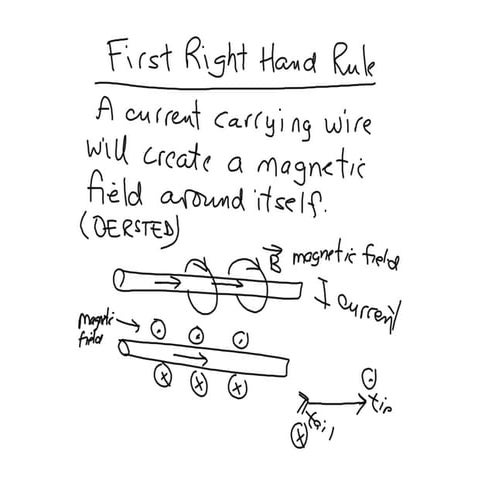 First Right Hand Rule
A current carrying wire
will create a magnetic
field around itself.
(OERSTED)
B magnetic field
I current
magnetic
field
tip
tail